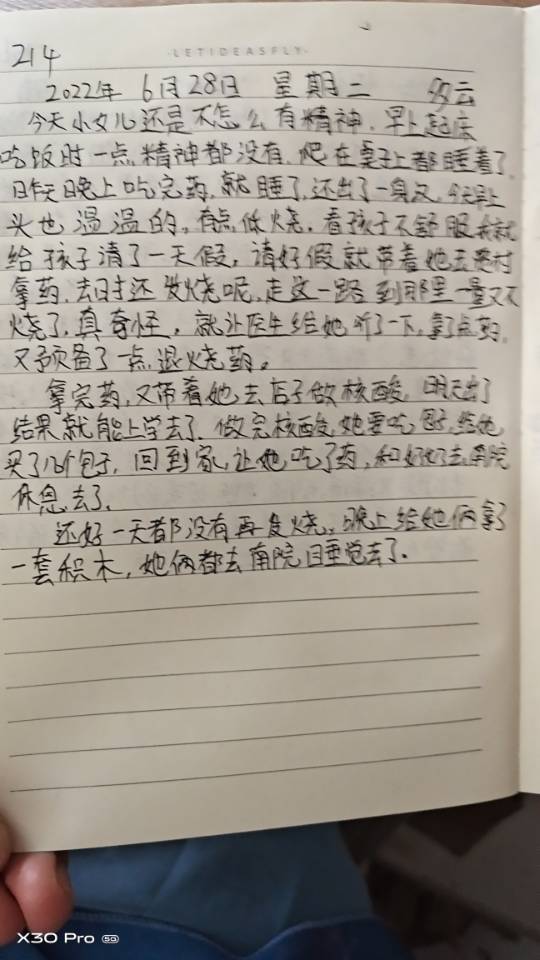 214
·LETIDEASFLY·
2022年 6月28日 星期二 多云
今天小女儿还是不怎么有精神，早上起床
吃饭时一点精神都没有，爬在桌子上都睡着了，
昨天晚上吃完药，就睡了，还出了一身汉，今天早上
头也温温的，有点低烧，看孩子不舒服我就
给孩子请了一天假，请好假就带着她去
拿药，去时还发烧呢，走这一路到那里一量又不
烧了，真奇怪，就让医生给她听了一下，拿了点药，
又预备了一点退烧药。
拿完药，又带着她去店子做核酸，明天出了
结果就能上学去了，做完核酸她要吃包子，给她
买了几个包子，回到家，让她吃了药，和奶奶去南院
休息去了，
还好一天都没有再发烧，晚上给她俩拿了
一套积木，她俩都去南院睡觉去了.
X30 Pro 5G